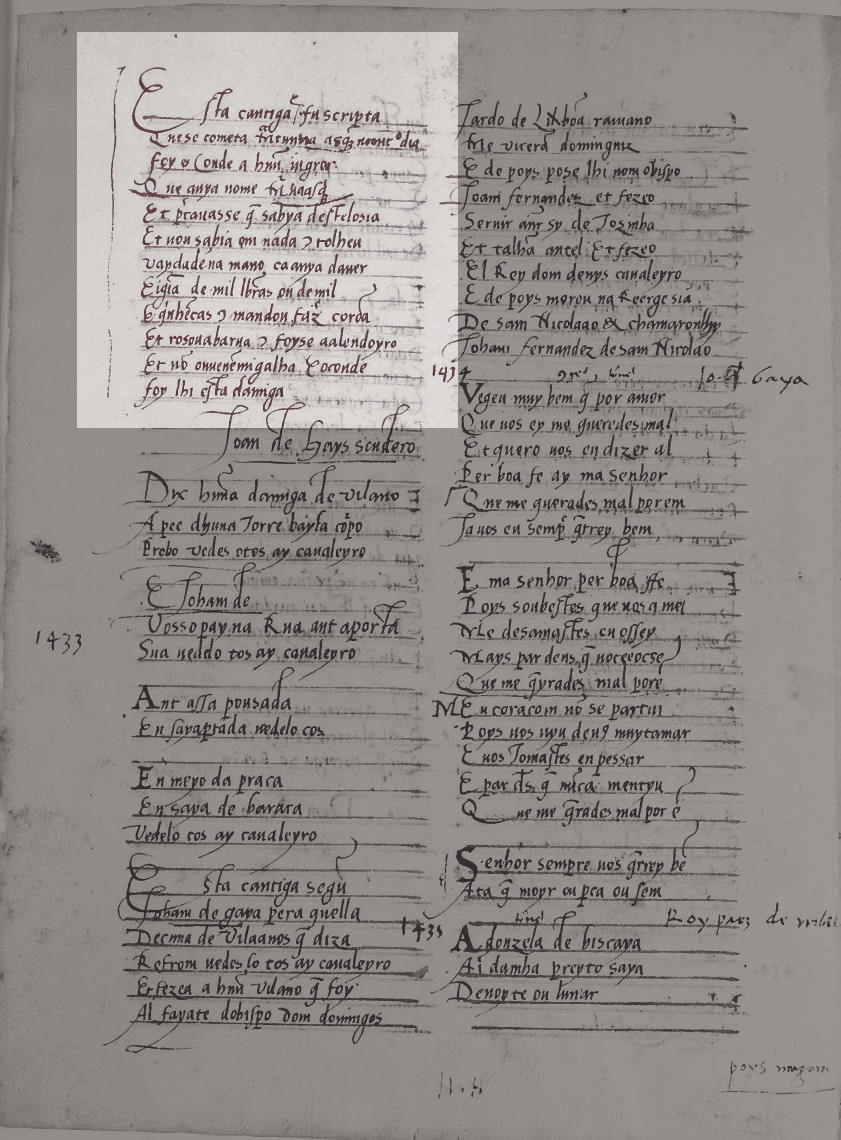 Esta cantiga fu scripta
Que se cometa
foy o Conde a hnũ
Que avya nome
Et p̃cavasse q̃ sabya destelosia
Et non sabia em nada ⁊ tolheu
vandadena mano caavya daver
de mil lbras on de mil
⁊ mandou faz̃ coroa
Et rosovabarva ⁊ foyse aalendoyro
Et nõ ouvenemigalha Eoconde
foy lhi esta damiga
Joan de Gays scudero
Dix hnũa damiga de vilano
A pee dhuna Torre bayla
Prebo vedes otos ay cavaleyro
E Joham de
Vosso pay na Rua ant aporta
Sua vedelo tos ay cavaleyro
1433
Ant assa pousada
En sayapertada vedelo cos
En meyo da praca
En saya de barara
Vedelo cos ay cavaleyro
Esta cantiga segũ
Joham de gaya pera quella
Decima de Vilaanos q̃ diza
Refrom vedes lo tos ay cavaleyro
Et fezea a hnũ vilano q̃ foy
Al fayate dobispo dom domingos
Jardo de Lixboa
domingnu
E de poys pose lhi nom obispo
Joam fernandez et fezeo
Servir ant sy de Tozinha
Et talha antel Et fezeo
El Rey dom denys cavaleyro
E de poys morou na Reergesia
De sam Nicolaao &
Johani fernandez de sam Nicolao
1434 Gaya
Vegeu muy bem q̃ por amor
Que vos ey me queredes mal
Et quero vos en dizer al
Per boa fe ay ma senhor
Que me querades mal porem
Ja vos eu semp̃ q̃rrey bem
E ma senhor per boa ffe
Poys soubestes que vos amei
Me desamastes eu ossey
Mays par deus q̃
Que me q̃yrades mal porẽ
Meu coracom nõ se partiu
Poys vos vyu deug muytamar
E vos Tomastes en pessar
E par ds q̃ nũca mentyu
Que me q̃rades mal por ẽ
Senhor sempre vos q̃rrey bẽ
Ata q̃ moyr ou pca ou sem
1435 Roy paez de
A donzela de biscaya
Ai damha preyto saya
Denoyte ou lunar
poys